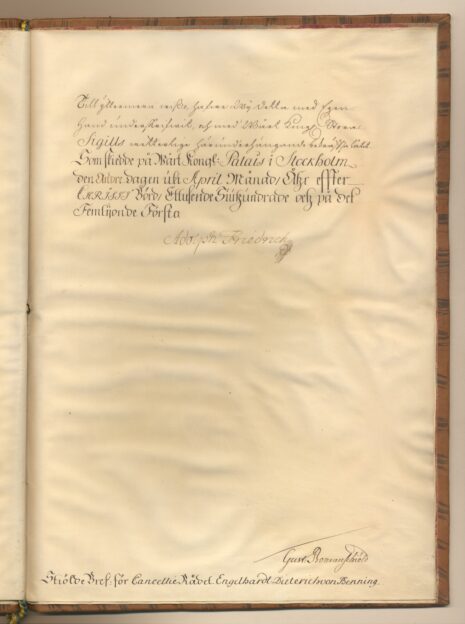 Till yttermera wisso, hafwe Wÿ detta med Egen
Hand underskrifwit, och med Wårt Kongl. Stora
Sigills wetterligen härunderhängande bekräfta låtit
Som skedde på Wårt Kongl: Palais i Stockholm
den dagen uti April Månad, Åhr effter
CHRISTI Börd, Ettusende Siuhundrade och på det
Femtijonde Första
Adolph Friedrich
Gust. Boneauschiöld
Skiölde Bref för Cancellie Rådet Engelhardt Dieterich von Benning.